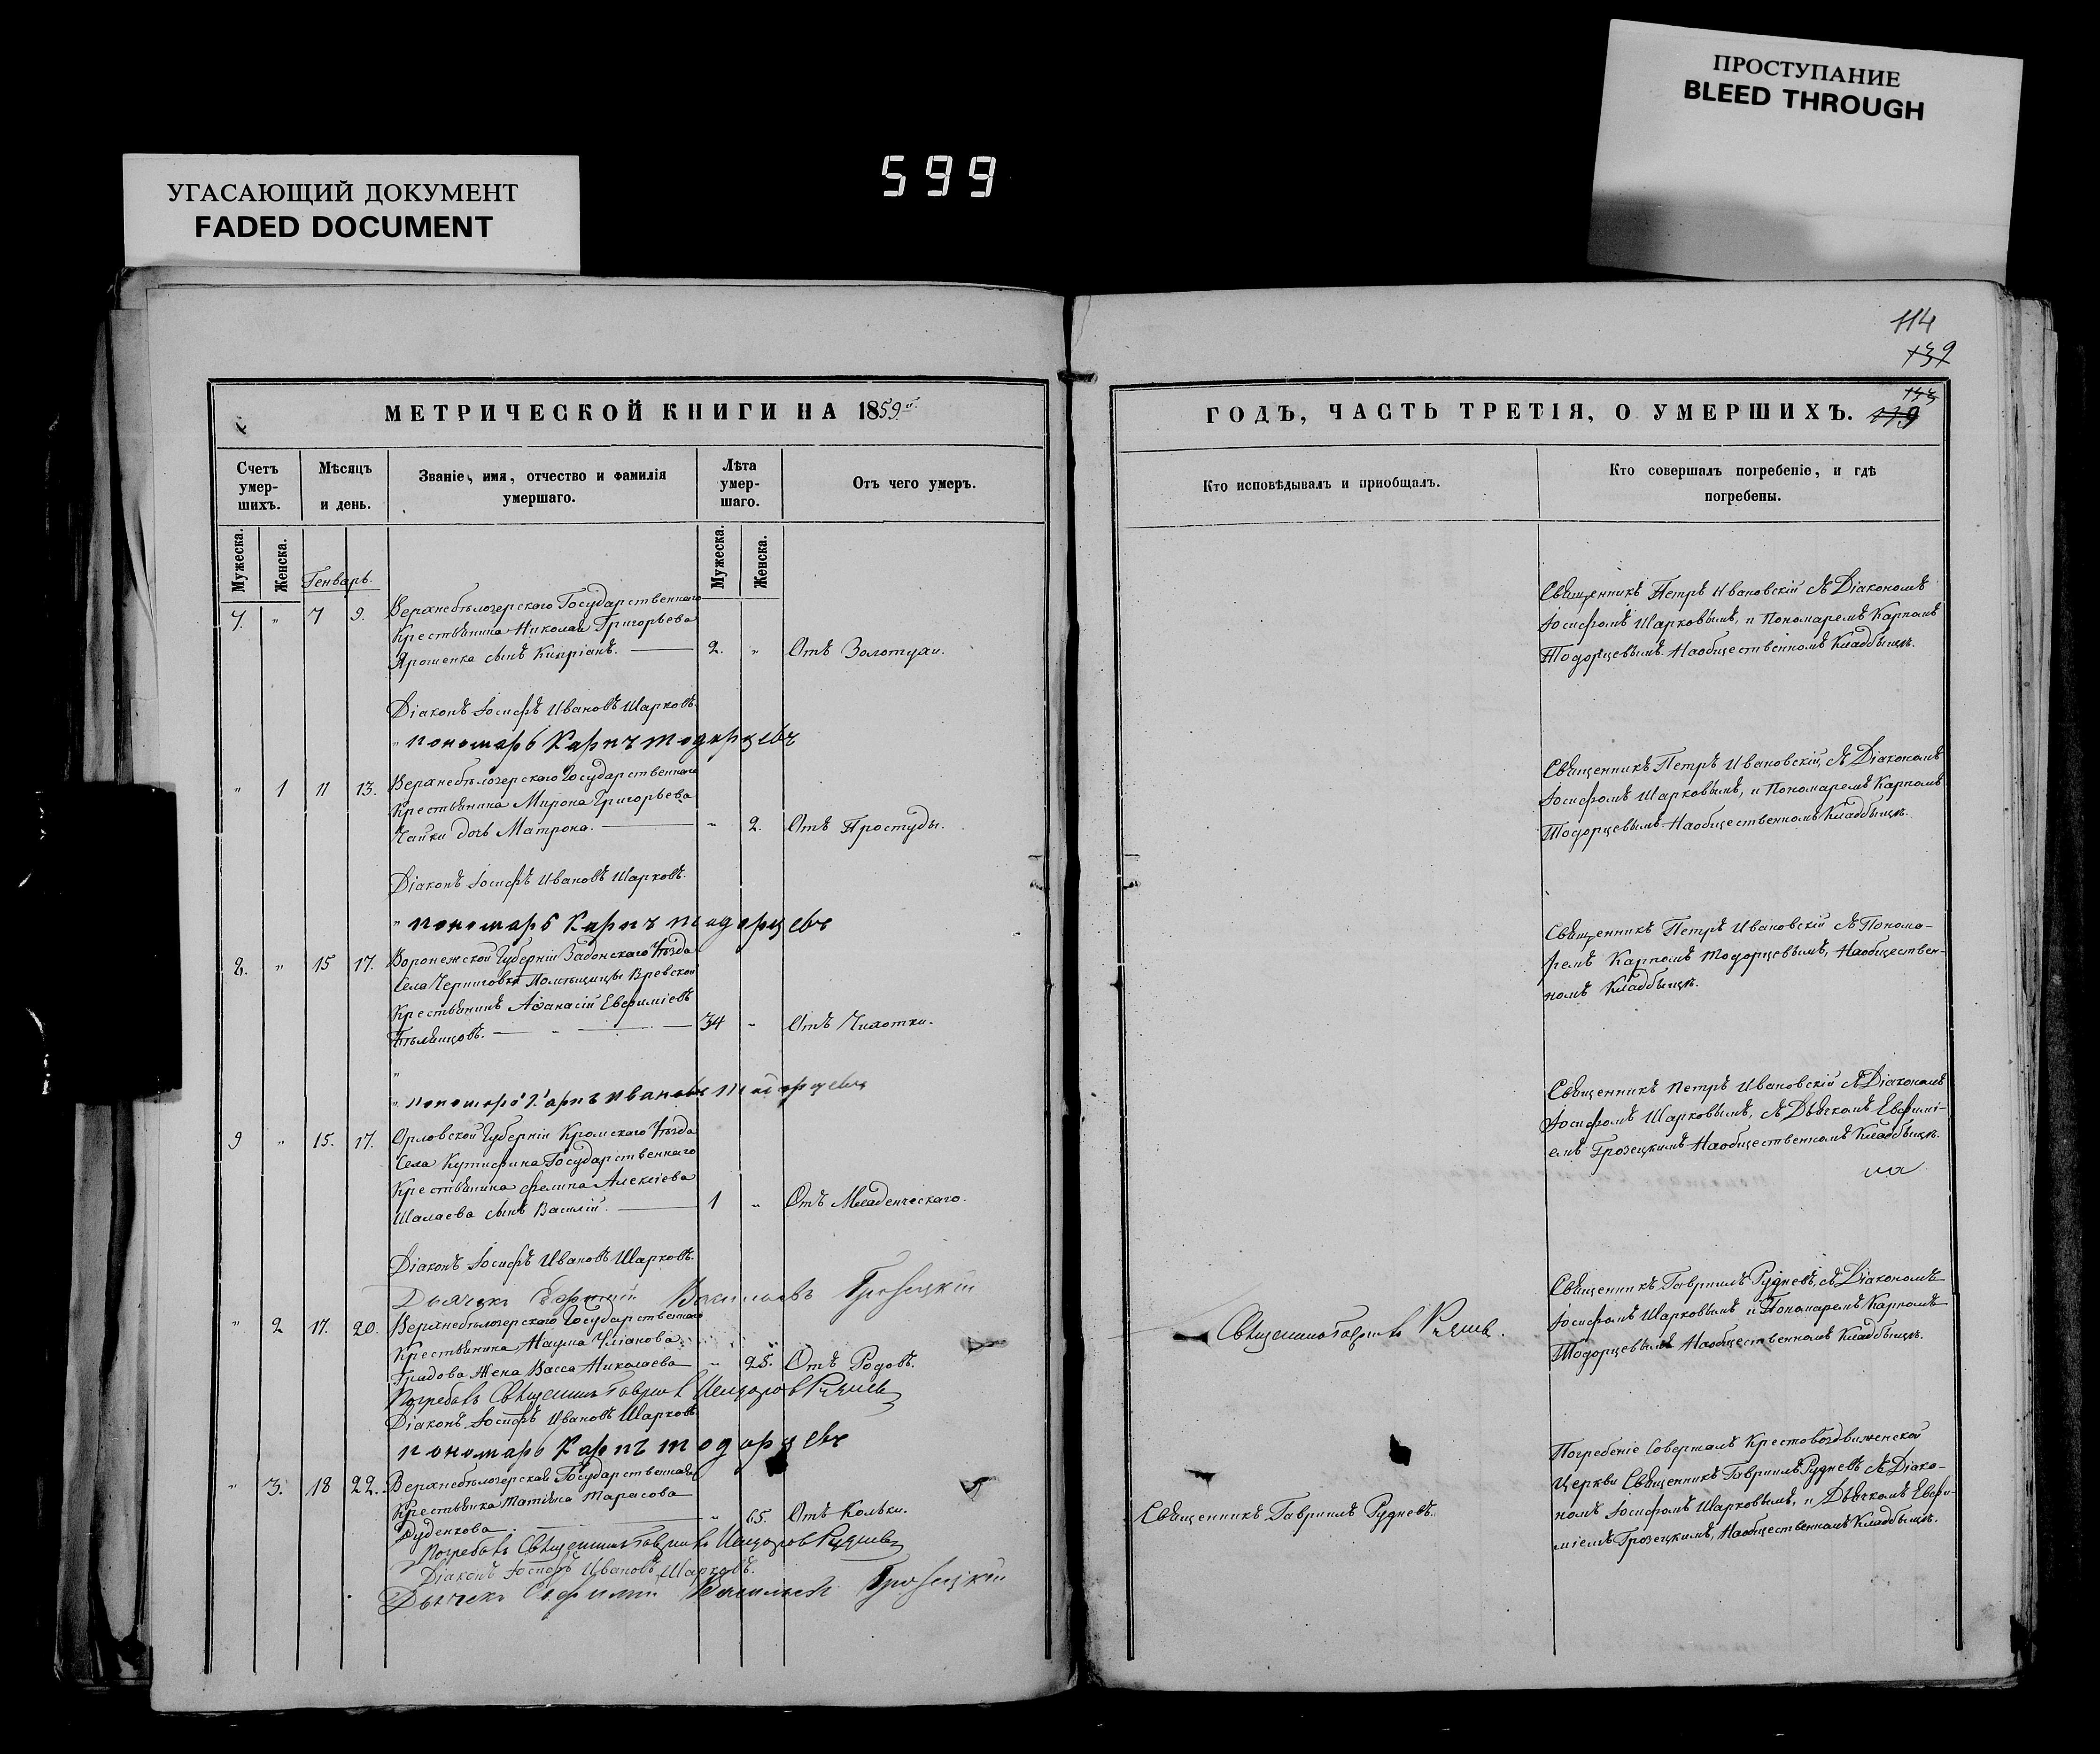 УГАСАЮЩИЙ ДОКУМЕНТ
FADED DOCUMENT
599
ПРОСТУПАНИЕ
BLEED THROUGH
114
139
МЕТРИЧЕСКОЙ КНИГИ НА 1859й
Счетъ умер-шихъ.
Мѣсяцъ и день.
Званіе, имя, отчество и фамилія умершаго.
Лѣта умер-шаго.
Отъ чего умеръ.
Мужеска.
Женска.
Мужеска.
Женска.
Генварь.
7. „ 7 9. Верхнебѣлозерскаго Государственнаго
Крестьянина Николая Григорьева
Ярошенка сынъ Кипріанъ. 2. „ Отъ Золотухи.
Діаконъ Іосифъ Ивановъ Шарковъ.
„ пономарь Карпъ Тодорцевъ
„ 1 11 13. Верхнебѣлозерскаго Государственнаго
Крестьянина Мирона Григорьева
Чайки дочь Матрона. „ 2. Отъ Простуды.
Діаконъ Іосифъ Ивановъ Шарковъ.
„ пономарь Карпъ Тодорцевъ
8. „ 15 17. Воронежской Губерніи Задонскаго Уѣзда
Села Черниговки Помѣщицы Вревской
Крестьянинъ Афанасій Евфиміевъ
34 „ Отъ Чихотки.
„
„ пономарь Карпъ Ивановъ Тодорцевъ
9 „ 15. 17. Орловской Губерніи Кромскаго Уѣзда
Села Государственнаго
Крестьянина Филипа Алексіева
Шалаева сынъ Василій. 1 „ Отъ Младенческаго.
Діаконъ Іосифъ Ивановъ Шарковъ.
Дьячекъ Ефимій Васильевъ Грозецкій
„ 2 17. 20. Верхнебѣлозерскаго Государственнаго
Крестьянина Наума Уліанова
Гридова Жена Васса Николаева „ 25. Отъ Родовъ.
Погребалъ Священникъ Гавріилъ Руднев
Діаконъ Іосифъ Ивановъ Шарковъ
пономарь Карпъ Тодорцевъ
„ 3. 18 22. Верхнебѣлозерская Государственная
Крестьянка Матрёна Тарасова
Дуденкова „ 65. Отъ Кольки.
Погребалъ Священникъ Гавріилъ Рудневъ
Діаконъ Іосифъ Ивановъ Шарковъ.
Дьячекъ Ефимій Васильевъ Грозецкій
ГОДЪ, ЧАСТЬ ТРЕТІЯ, О УМЕРШИХЪ.
Кто исповѣдывалъ и пріобщалъ.
Кто совершалъ погребеніе, и гдѣ погребены.
Священникъ Петръ Ивановскій съ Діакономъ
Іосифомъ Шарковымъ, и Пономаремъ Карпомъ
Тодорцевымъ. Наобщественномъ Кладбищѣ.
Священникъ Петръ Ивановскій, съ Діакономъ
Іосифомъ Шарковымъ, и Пономаремъ Карпомъ
Тодорцевымъ. Наобщественномъ Кладбищѣ.
Священникъ Петръ Ивановскій съ Понома-
ремъ Карпомъ Тодорцевымъ, Наобществен-
номъ Кладбищѣ.
Священникъ Петръ Ивановскій съ Діакономъ
Іосифомъ Шарковымъ, съ Дьячкомъ Евфимі-
емъ Грозецкимъ Наобщественномъ Кладбищѣ.
Священникъ Гавріилъ Рудневъ, съ Діакономъ
Іосифомъ Шарковымъ и Пономаремъ Карпомъ
Тодорцевымъ Наобщественномъ Кладбищѣ.
Священникъ Гавріилъ Рудневъ.
Погребеніе Совершалъ Крестовоздвиженской
Церкви Священникъ Гавріилъ Рудневъ съ Діако-
номъ Іосифомъ Шарковымъ, и Дьячкомъ Евфи-
міемъ Грозецкимъ, Наобщественномъ Кладбищѣ.
Священникъ Гавріилъ Рудневъ.